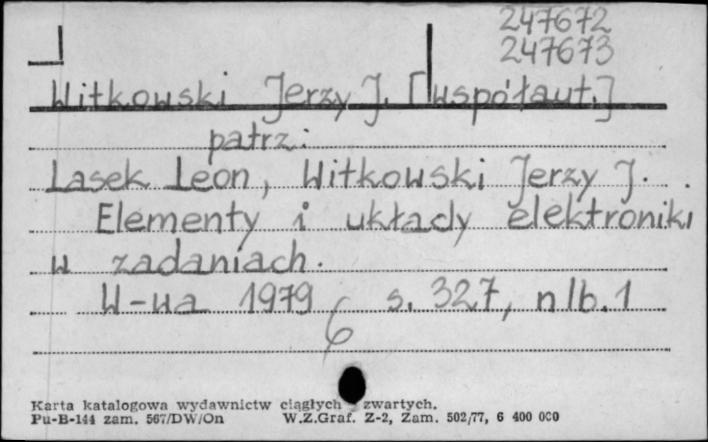 247672
247673
Witkowski Jerzy J. [współaut.]
patrz:
Lasek Leon, Witkowski Jerzy J.
Elementy i układy elektroniki
w zadaniach.
W-wa 1979 s. 327, nlb. 1
6
Karta katalogowa wydawnictw ciągłych zwartych.
Pu-B-144 zam. 567/DW/On W.Z.Graf. Z-2, Zam. 502/77, 6 400 000